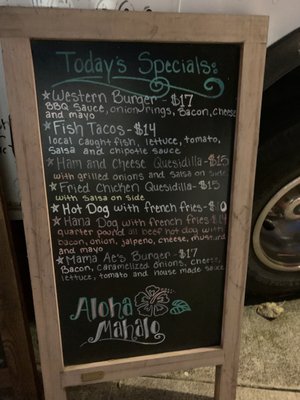 Today's Specials:
Western Burger - $17
BBQ Sauce, onion rings, Bacon, cheese
and mayo
Fish Tacos - $14
local caught fish, lettuce, tomato,
salsa and chipotle sauce
Ham and Cheese Quesidilla - $15
with grilled onions and salsa on side
Fried Chicken Quesidilla - $15
with salsa on side
Hot Dog with french fries - $ 0
Hana Dog with french fries $14
quarter pound all beef hot dog with
bacon, onion, jalpeno, cheese, mustard
and mayo
Mama Ae's Burger - $17
Bacon, caramelized onions, cheese,
lettuce, tomato and house made sauce
Aloha
Mahalo